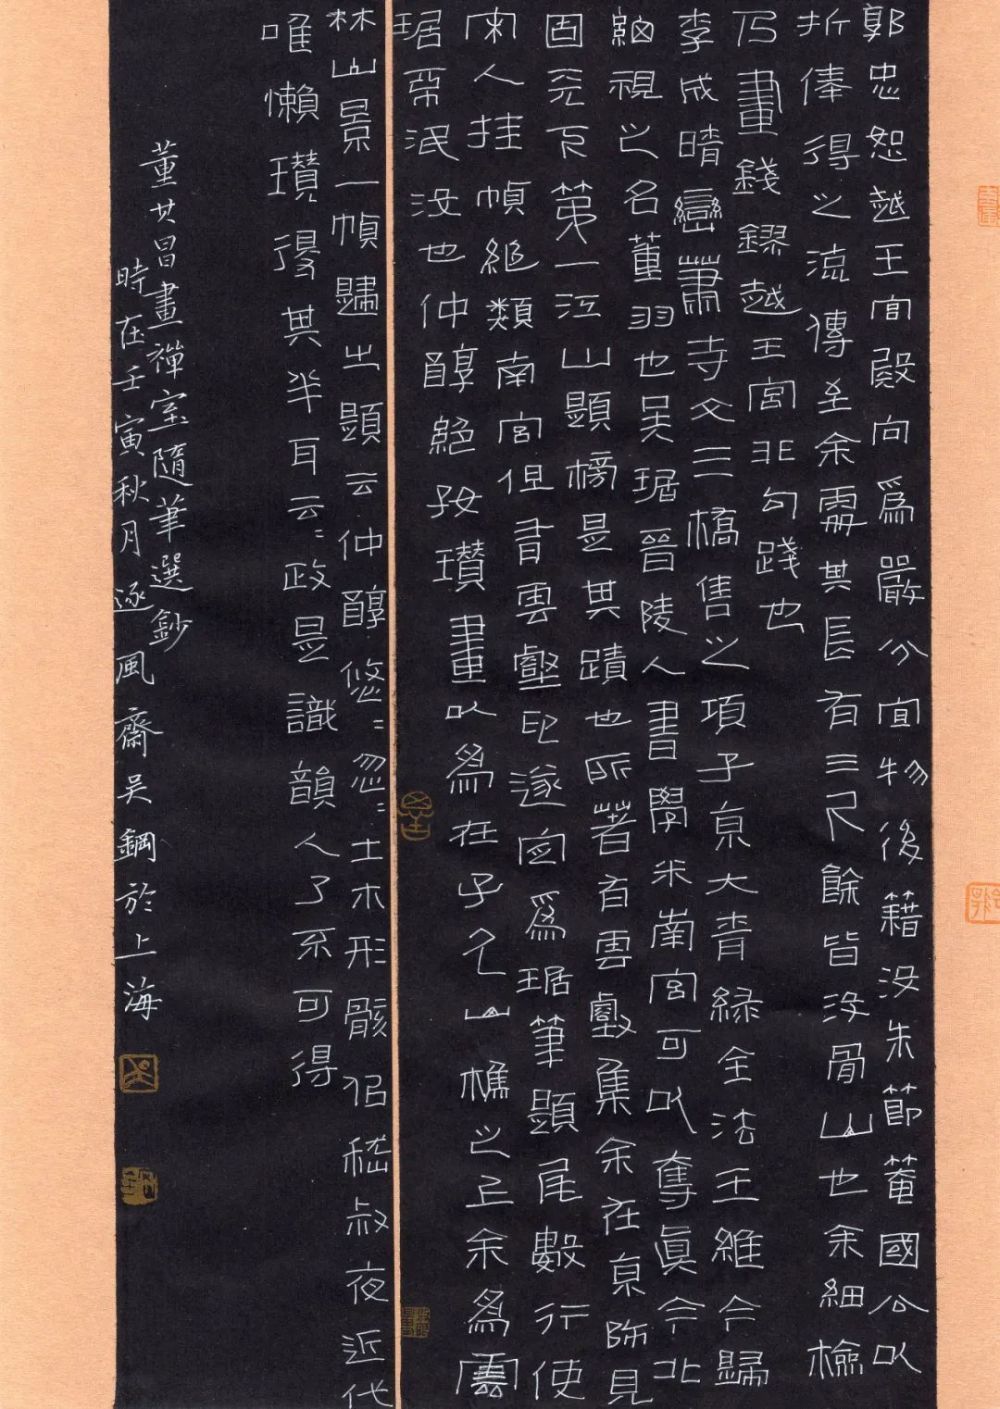 郭忠恕越王宮殿向為嚴分宜物後籍沒朱節菴國公以
折俸得之流傳至余處其長有三尺餘皆沒骨山也余細檢
乃畫錢鏐越王宮非句踐也
李成晴巒蕭寺文三橋售之項子京大青綠全法王維今歸
細視之名董羽也吴琚晉陵人書學米南宮可以奪真今北
固天下第一江山題榜是其蹟也所著有雲壑集余在京師見
宋人挂幀絕類南宮但有雲壑印遂定為琚筆題尾數行使
琚不泯沒也仲醇絕好瓚畫以為在子久山樵之上余為雲
林山景一幀歸之題云仲醇悠〻忽〻土木形骸似嵇叔夜近代
唯懶瓚得其半耳云〻政是識韻人了不可得
董其昌畫禪室隨筆選鈔
時在壬寅秋月逐風齋吴鋼於上海